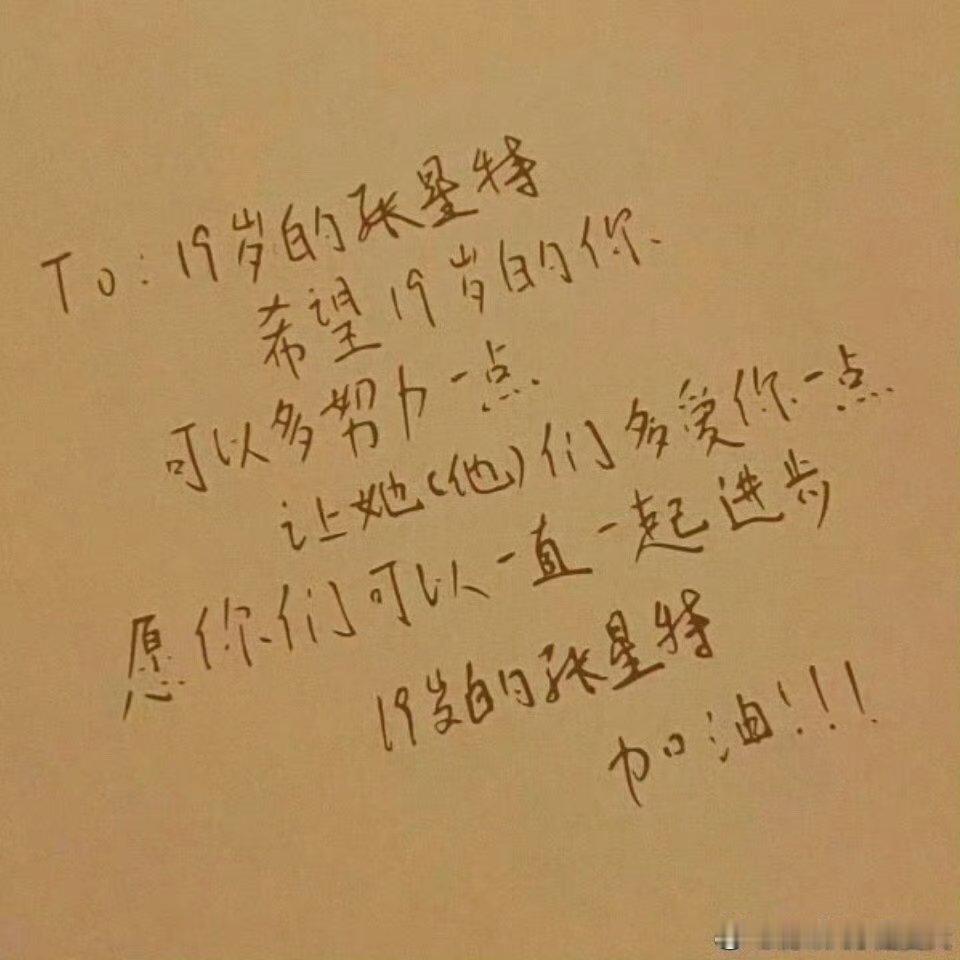 To：19岁的张星特
希望19岁的你
可以多努力一点
让她(他)们多爱你一点
愿你们可以一直一起进步
19岁的张星特
加油!!!